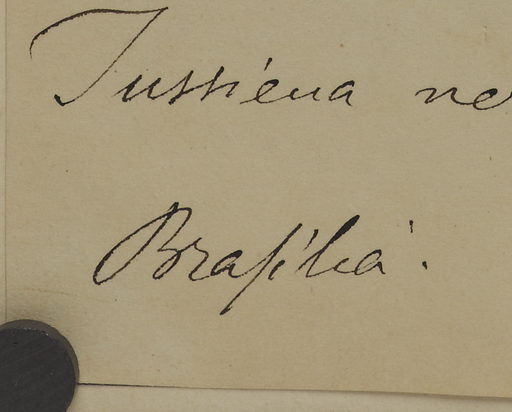 Jussieua ne
Brasilia.